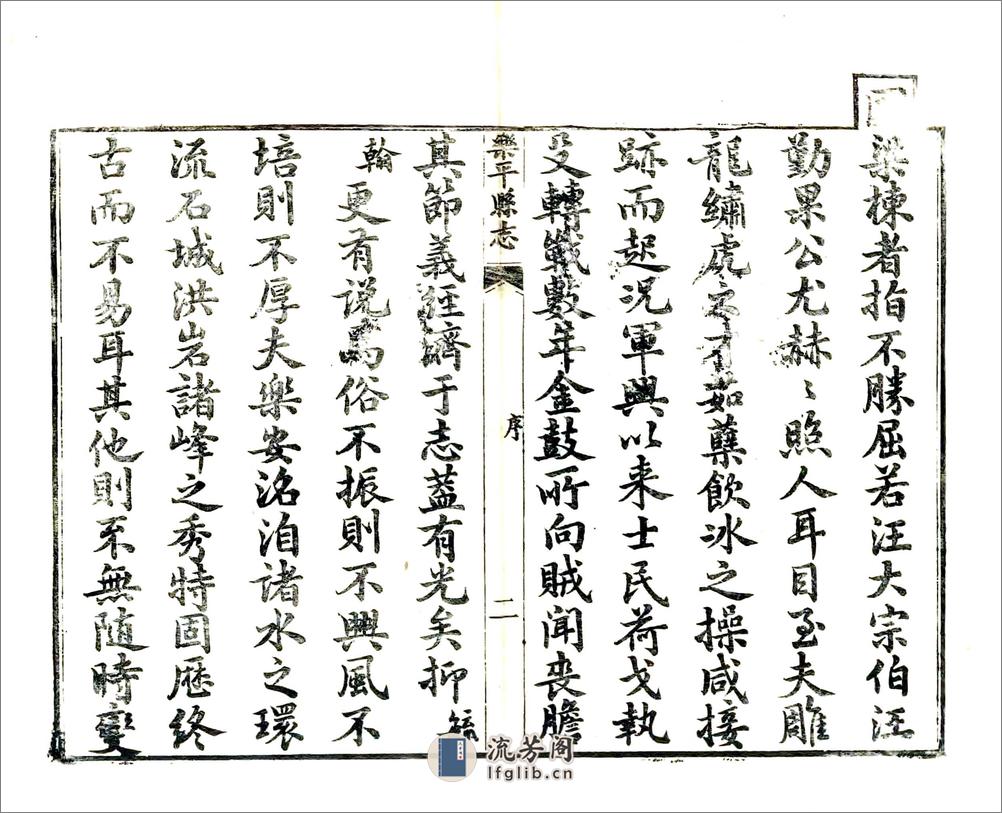 梁棟者指不勝屈若汪大宗伯汪
勤果公尤赫〻照人耳目至夫雕
龍繡虎之才茹蘗飲冰之操咸接
跡而起況軍興以来士民荷戈執
殳轉戰數年金鼓所向賊聞喪膽
樂平縣志
序
二
其節義經濟于志蓋有光矣抑
翰更有説焉俗不振則不興風不
培則不厚夫樂安洺洎諸水之環
流石城洪岩諸峰之秀特固歷終
古而不易耳其他則不無隨時變
流芳阁
lfglib.cn